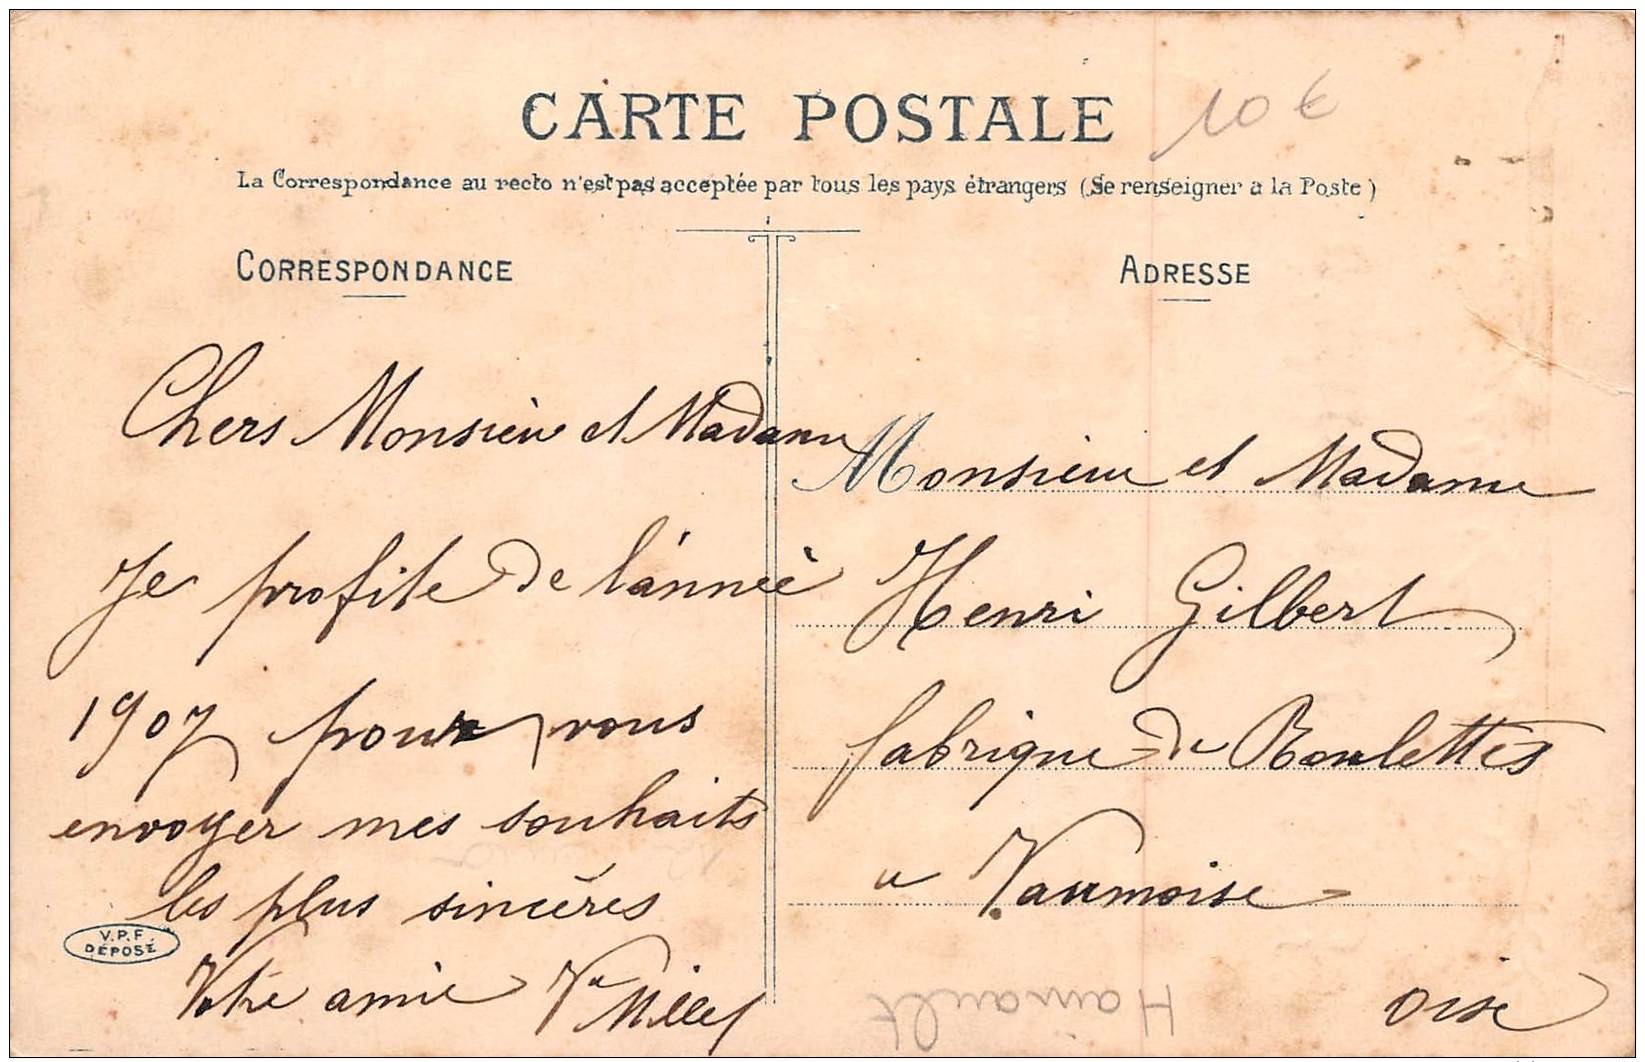 CARTE POSTALE
10 €
La Correspondance au recto n'est pas acceptée par tous les pays étrangers (Se renseigner a la Poste)
CORRESPONDANCE
Chers Monsieur et Madame
Je profite de l'année
1907 pour vous
envoyer mes souhaits
les plus sincères
Votre amie Vve Millet
V.P.F
DÉPOSÉ
ADRESSE
Monsieur et Madame
Henri Gilbert
fabrique de Roulettes
a Vaumoise
Oise
Hainault